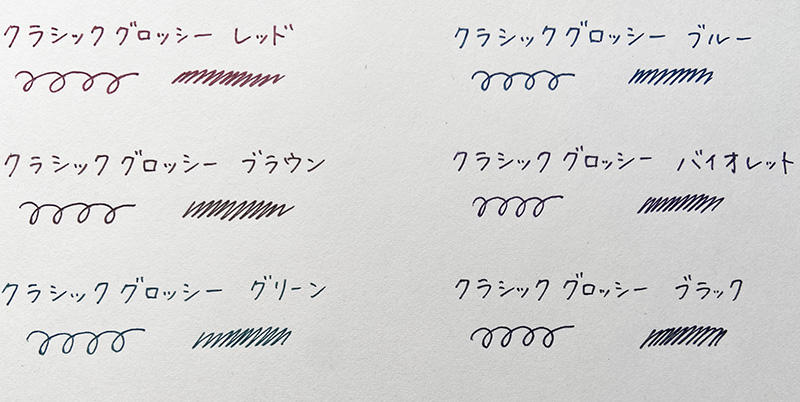 クラシックグロッシー レッド
クラシックグロッシー ブルー
クラシックグロッシー ブラウン
クラシックグロッシー バイオレット
クラシックグロッシー グリーン
クラシックグロッシー ブラック